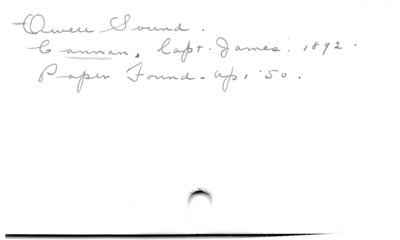 Owen Sound.
Cannan, Capt. James. 1892.
Paper Found - Ap, '50.